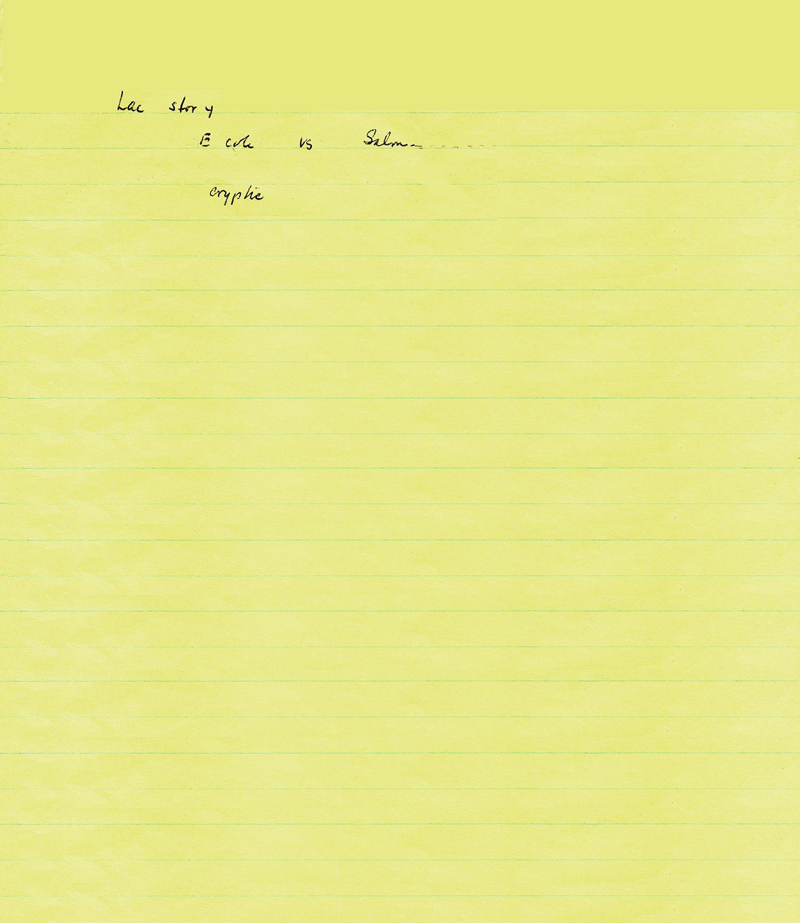 Lac story
E coli vs Salm
cryptic